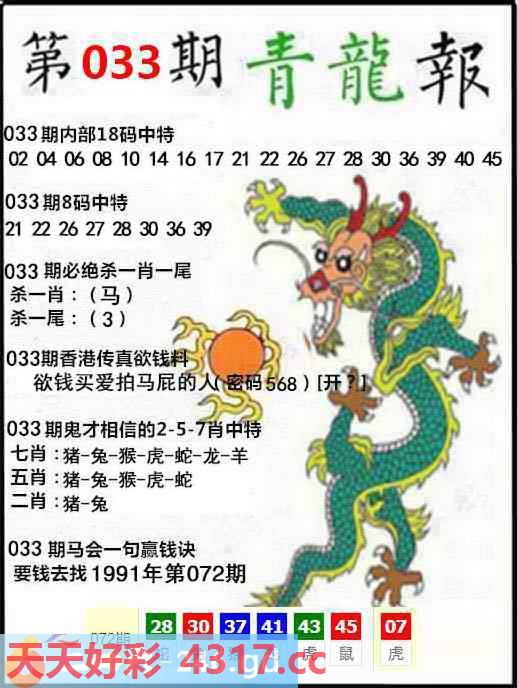 第033期青龍報
033期内部18码中特
02 04 06 08 10 14 16 17 21 22 26 27 28 30 36 39 40 45
033期8码中特
21 22 26 27 28 30 36 39
033 期必绝杀一肖一尾
杀一肖：（马）
杀一尾：（3）
033期香港传真欲钱料
欲钱买爱拍马屁的人(密码568) [开？]
033期鬼才相信的2-5-7肖中特
七肖：猪-兔-猴-虎-蛇-龙-羊
五肖：猪-兔-猴-虎-蛇
二肖：猪-兔
033 期马会一句赢钱诀
要钱去找1991年第072期
072期 28 30 37 41 43 45 07
蛇 虎 鼠 虎
天天好彩 4317.cc